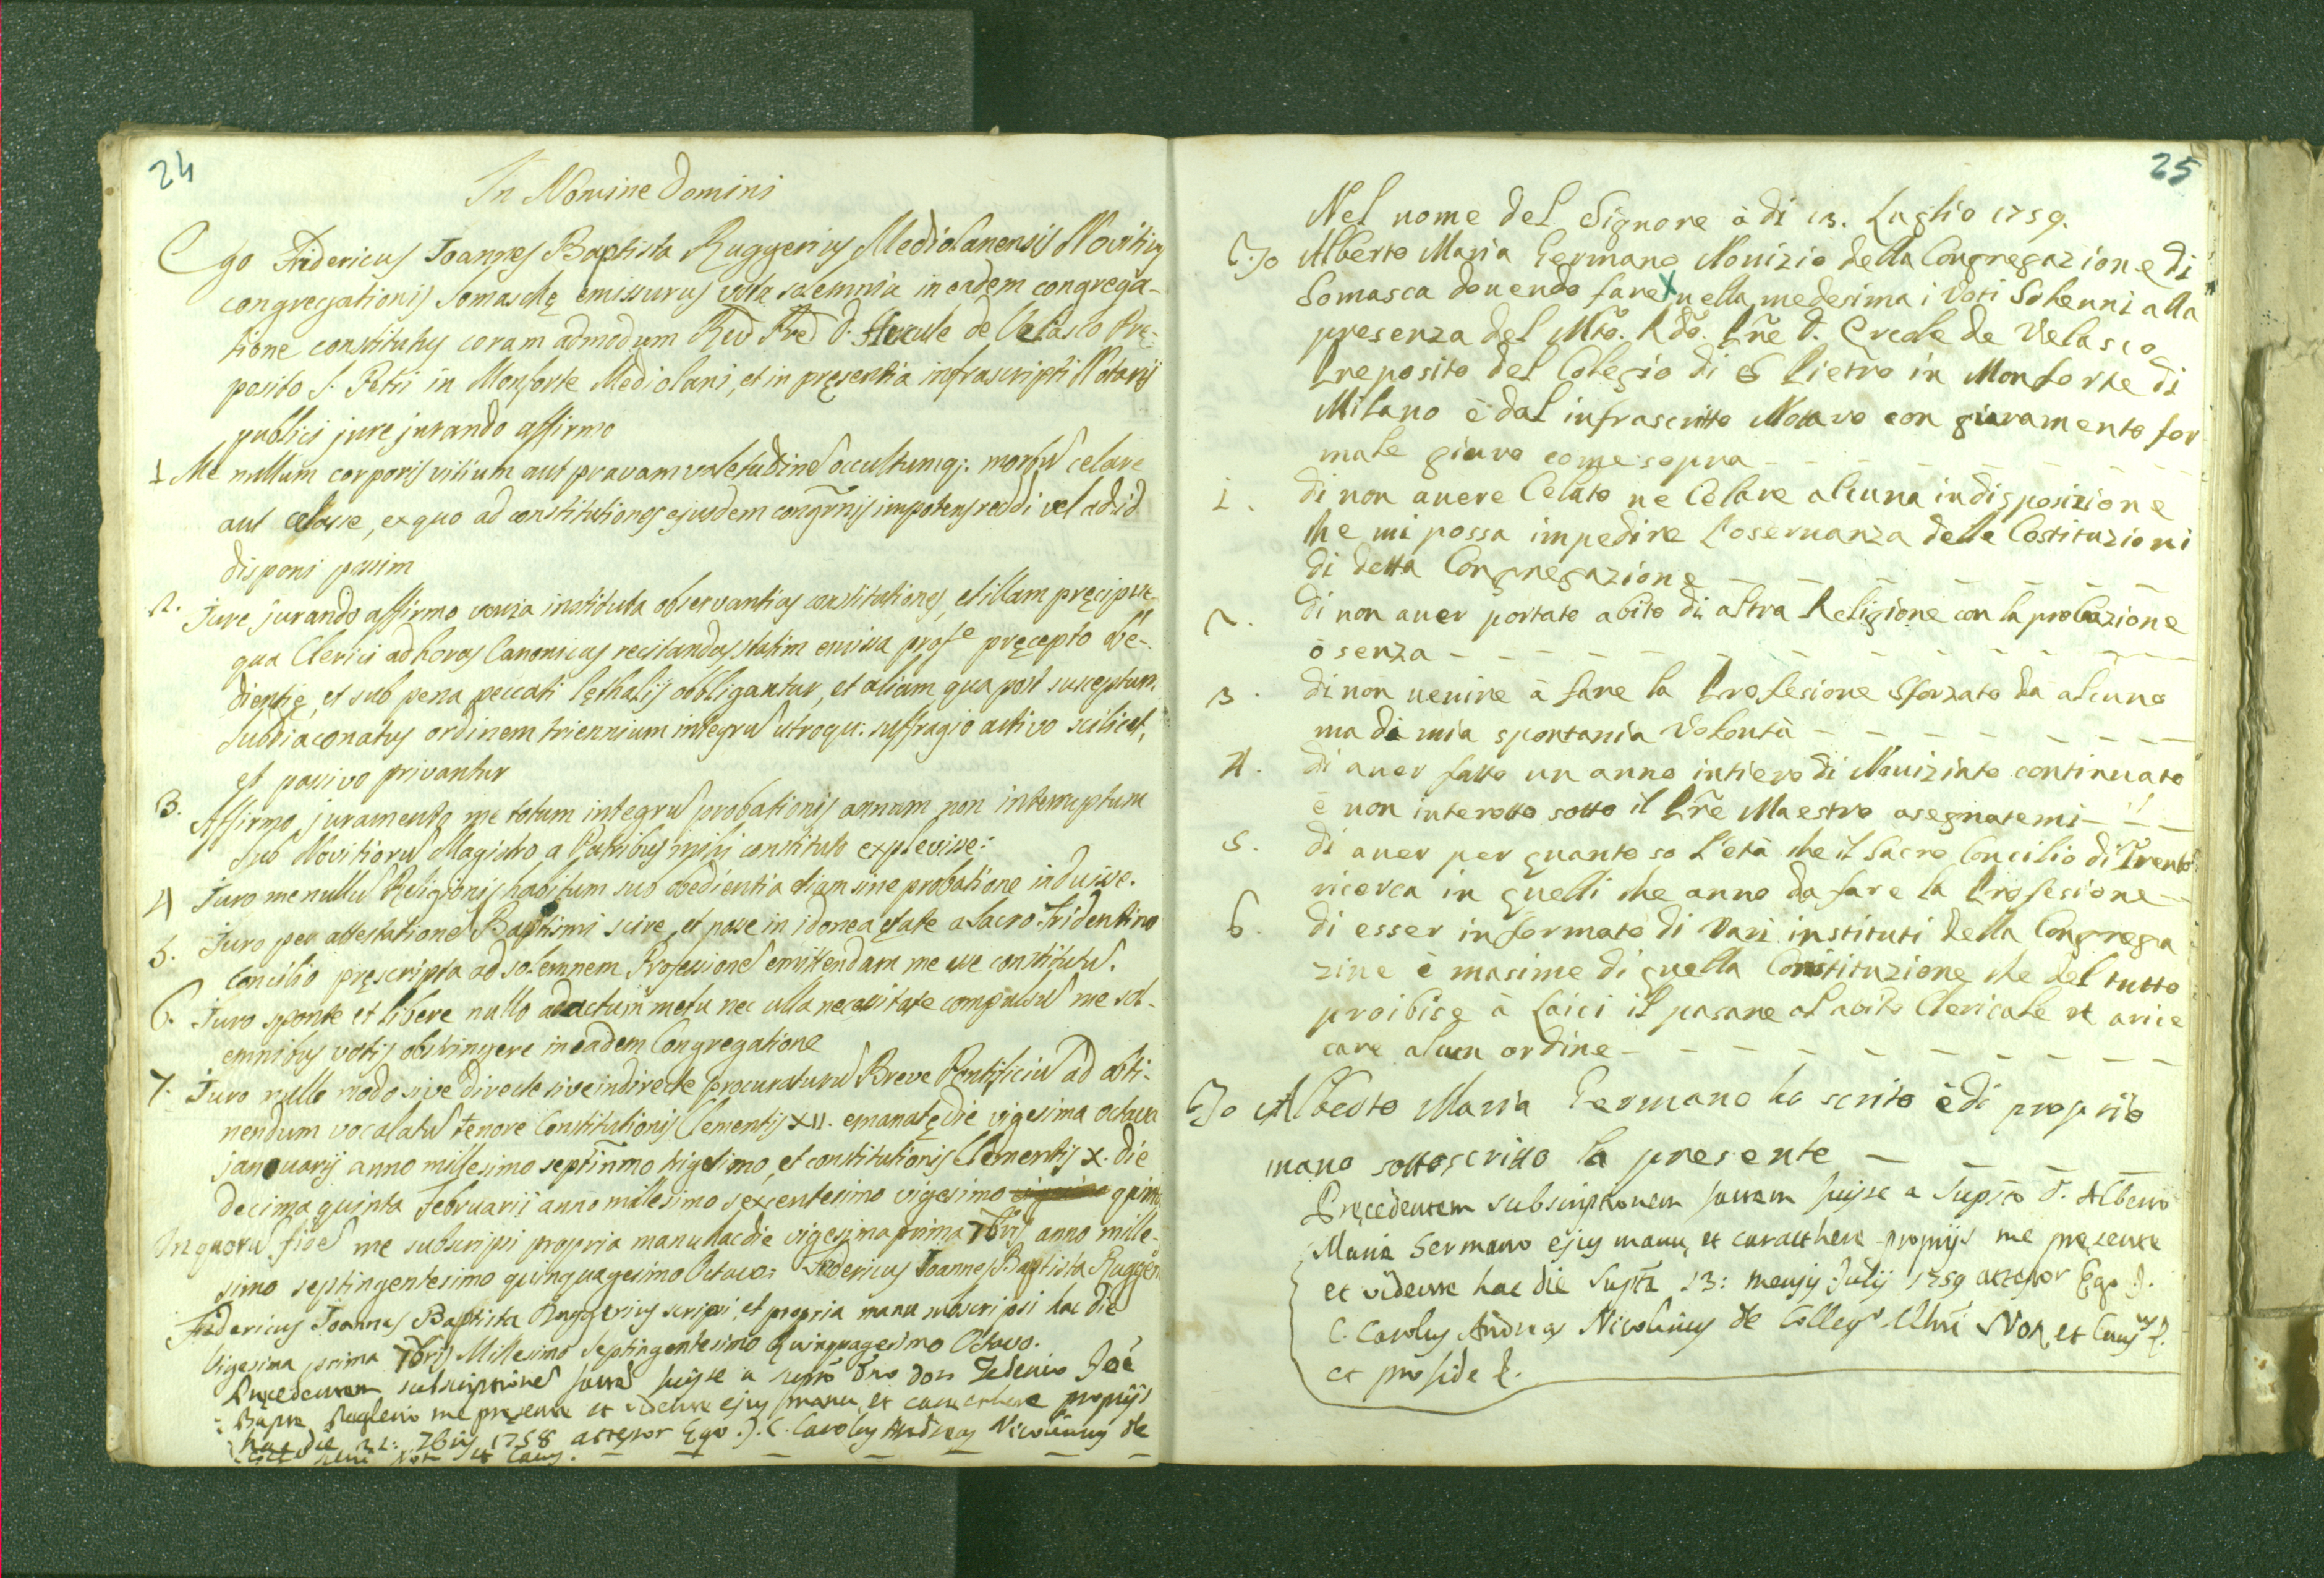 24
In Nomine Domini
Ego Fridericus Joannes Baptista Ruggerius Mediolanensis Novitius
congregationis Somaschę emissurus vota solemnia in eadem congrega-
tione constitutus coram admodum Red Pre D. Hercule de Velasco Prę-
posito S. Petri in Monforte Mediolani, et in pręsentia infrascripti Notarij
publici jure jurando affirmo
1 Me nullum corporis vitium aut pravam valetudine occultumq; morbu celare
aut celasse, ex quo ad constitutiones ejusdem congrñis impotens reddi vel ad id
disponi possim
2. Jure jurando affirmo instituta observantias constitutiones, et illam pręcipue
qua Clerici ad horas Canonicas recitandas statim emissa profe pręcepto obe-
dientię, et sub pena peccati lęthalis obbligantur, et aliam qua post susceptum
subdiaconatus ordinem triennium integru utroqu: suffragio activo scilicet,
et passivo privantur
3. Affirmo juramento me totum integru probationis annum non interruptum
sub Novitioru Magistro a Patribus mihi constituto explevisse:
4 Juro me nullu Religionis habitum sub obedientia etiam sine probatione induisse.
5. Juro per attestatione Baptismi scire, et posse in idonea ętate a Sacro Tridentino
Concilio pręscripta ad solemnem Professione emittendam me esse constitutu.
6. Juro sponte et libere nullo adactum metu nec ulla necessitate compulsu me sol-
emnibus votis obstringere in eadem Congregatione
7. Juro nullo modo sive directe sive indirecte procuraturu Breve Pontificiu ad obti-
nendum vocalatu tenore Constitutionis Clementis XII. emanatę die vigesima octava
januarij anno millesimo septinmo trigesimo, et constitutionis Clementis X. die
decima quinta Februarii anno millesimo sexcentesimo vigesimo quinto
In quoru fide me subscripsi propria manu hac die vigesima prima 7bris anno mille-
simo septingentesimo quinquagesimo Octavo: Fridericus Joannes Baptista Rugger
Fridericus Joannes Baptista Ruggerius scripsi, et propria manu subscripsi hac die
Vigesima prima 7bris Millesimo Septingentesimo Quinquagesimo Octavo.
Pręcedentem subscriptione factã fuisse a supto Dno Don Federico Joe
Bapta Ruglerio me pręsente et vidente ejus manu, et caracthere proprijs
hac die 21: 7bris 1758 attestor Ego J. C. Carolus Andreas Nicolinus de
Not et Caus.
25
Nel nome del Signore à di 13. Luglio 1759.
Io Alberto Maria Germano Novizio della Congregazione di
Somasca dovendo fare nella medesima i Voti Solenni alla
presenza del Mto. Rdo. Pre D. Ercole de Velasco
Preposito del Colegio di S Pietro in Monforte di
Milano è dal infrascritto Notaro con giuramento for
male giuro come sopra
1. di non avere Celato ne Celare alcuna indisposizione
che mi possa impedire l'oservanza delle Costituzioni
di detta Congregazione
2. di non aver portato abito di altra Religione con la probazione
ò senza
3. di non venire à fare la Profesione Sforzato da alcuno
ma di mia spontania Volontà
4. di aver fatto un anno intiero di Noviziato continuato
è non interotto sotto il Pre Maestro asegnatemi
5. di aver per quanto so l'età che il Sacro Concilio di Trento
ricerca in quelli che anno da fare la Profesione
6. di esser informato di Vari instituti della Congrega
zine è masime di quella Constituzione che del tutto
proibise à Laici il pasare al abito Clericale et arice
care alcun ordine
Io Alberto Maria Germano ho scrito è di proprio
mano sottoscritto la presente
Pręcedentem subscriptionem factam fuisse a Supto D. Alberto
Maria Germano ejus manu, et caracthere proprijs me pręsente
et vidente hac die Supta 13: mensis Julij 1759 attestor Ego J.
C. Carolus Andreas Nicolinus de Colleg Not. et Caus
et pro fide